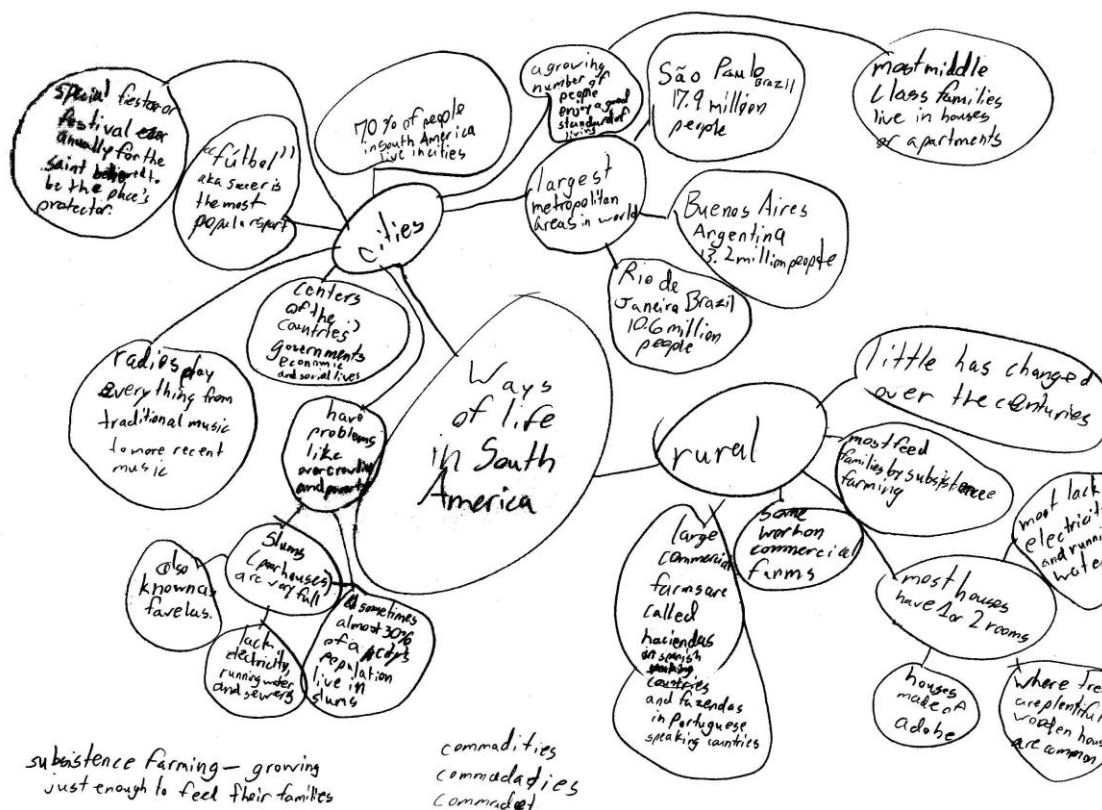 Ways
of life
in South
America
cities
special fiesta or
festival
anually for the
saint believed to
be the place's
protector.
"fútbol"
aka soccer is
the most
popular sport
70% of people
in South America
live in cities
a growing
number of
people
enjoy a good
standard of
living
most middle
class families
live in houses
or apartments
largest
metropolitan
areas in world
São Paulo
Brazil
17.9 million
people
Buenos Aires
Argentina
13.2 million people
Rio de
Janeira Brazil
10.6 million
people
centers
of the
countries
governments
economic
and social lives
radios play
everything from
traditional music
to more recent
music
have
problems
like
overcrowding
and poverty
slums
(poor houses)
are very full
also
known as
favelas.
lack
electricity,
running water
and sewers
sometimes
almost 30%
of a city's
population
live in
slums
rural
little has changed
over the centuries
most feed
families by subsistence
farming
some
work on
commercial
farms
large
commercial
farms are
called
haciendas
in spanish
speaking
countries
and fazendas
in Portuguese
speaking countries
most houses
have 1 or 2 rooms
most lack
electricity
and running
water
houses
made of
adobe
where tre
are plentiful
wooden hous
are common
subsistence farming – growing
just enough to feel their families
commadities
commadadties
commadoet